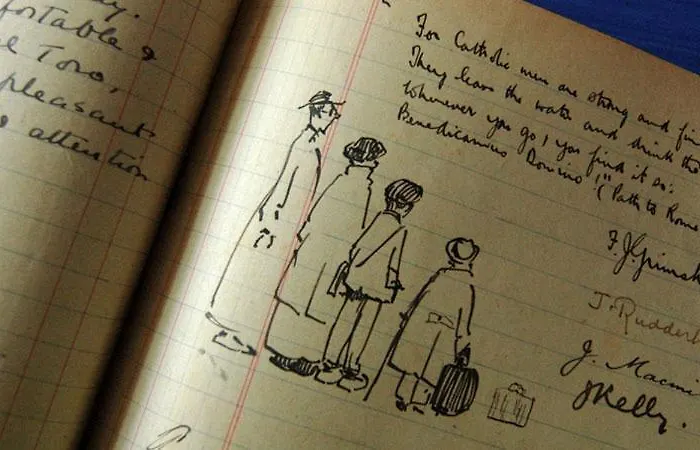 ay.
fortable &
el Toro,
pleasant
attention
For Catholic men are strong and fin
They leave the water and drink the
Whenever you go, you find it so:
Benedicamus Domino!" (Path to Rome
F. J. Grimsh
J. Rudderh
J. Macm
J Kelly.